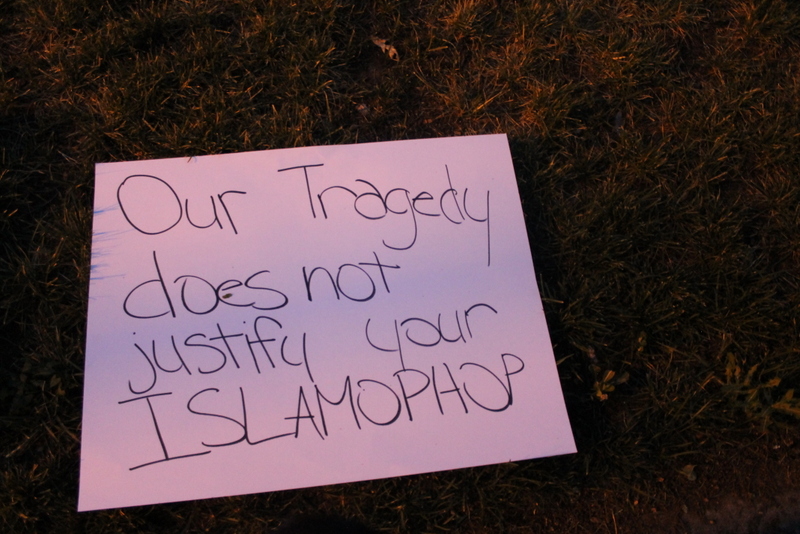 Our Tragedy
does not
justify your
ISLAMOPHOP